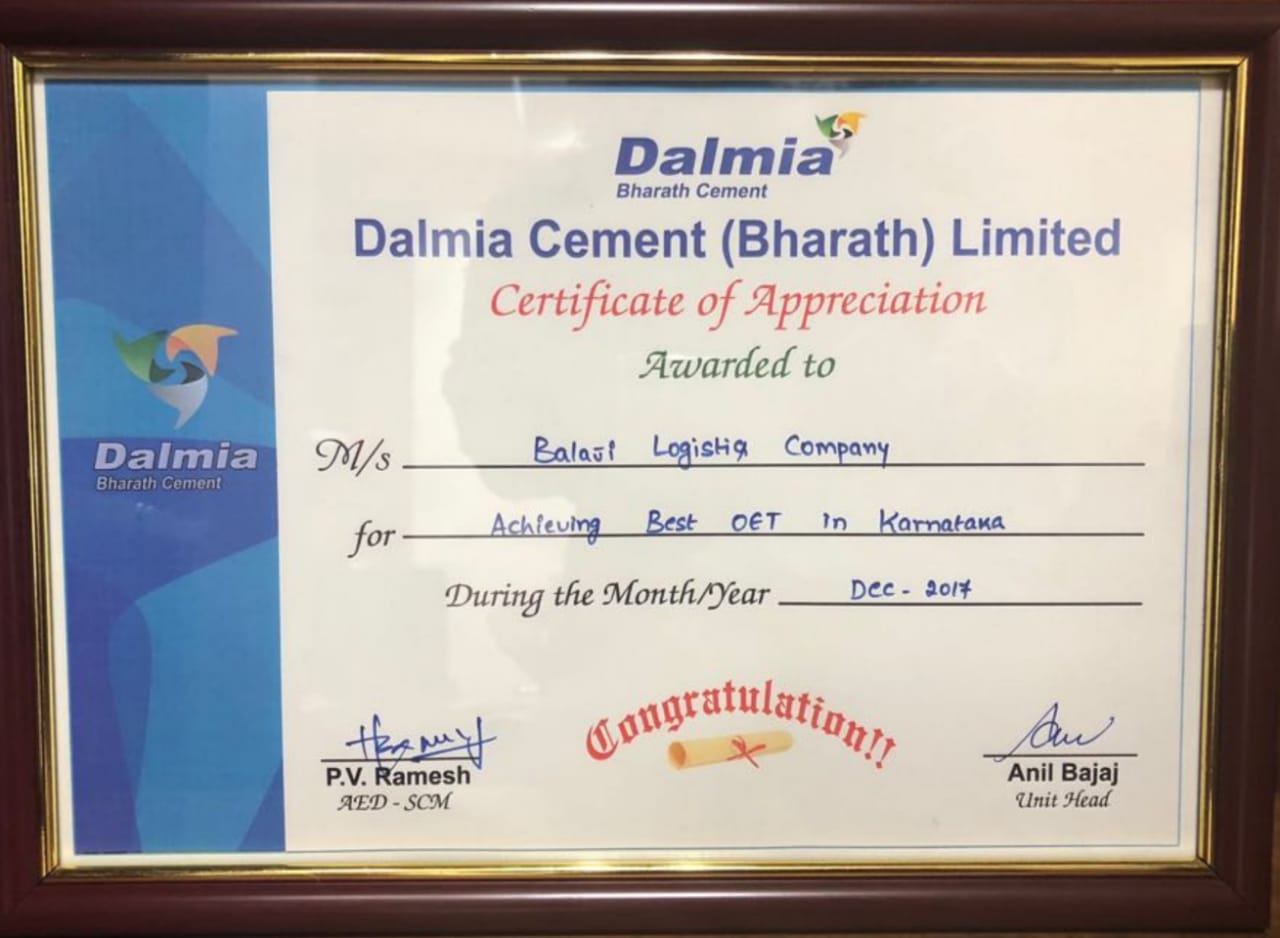 Dalmia
Bharath Cement
Dalmia Cement (Bharath) Limited
Certificate of Appreciation
Awarded to
M/s Balaji Logistiq Company
for Achieving Best OET in Karnataka
During the Month/Year Dec - 2017
Dalmia
Bharath Cement
Congratulation!!
P.V. Ramesh
AED - SCM
Anil Bajaj
Unit Head